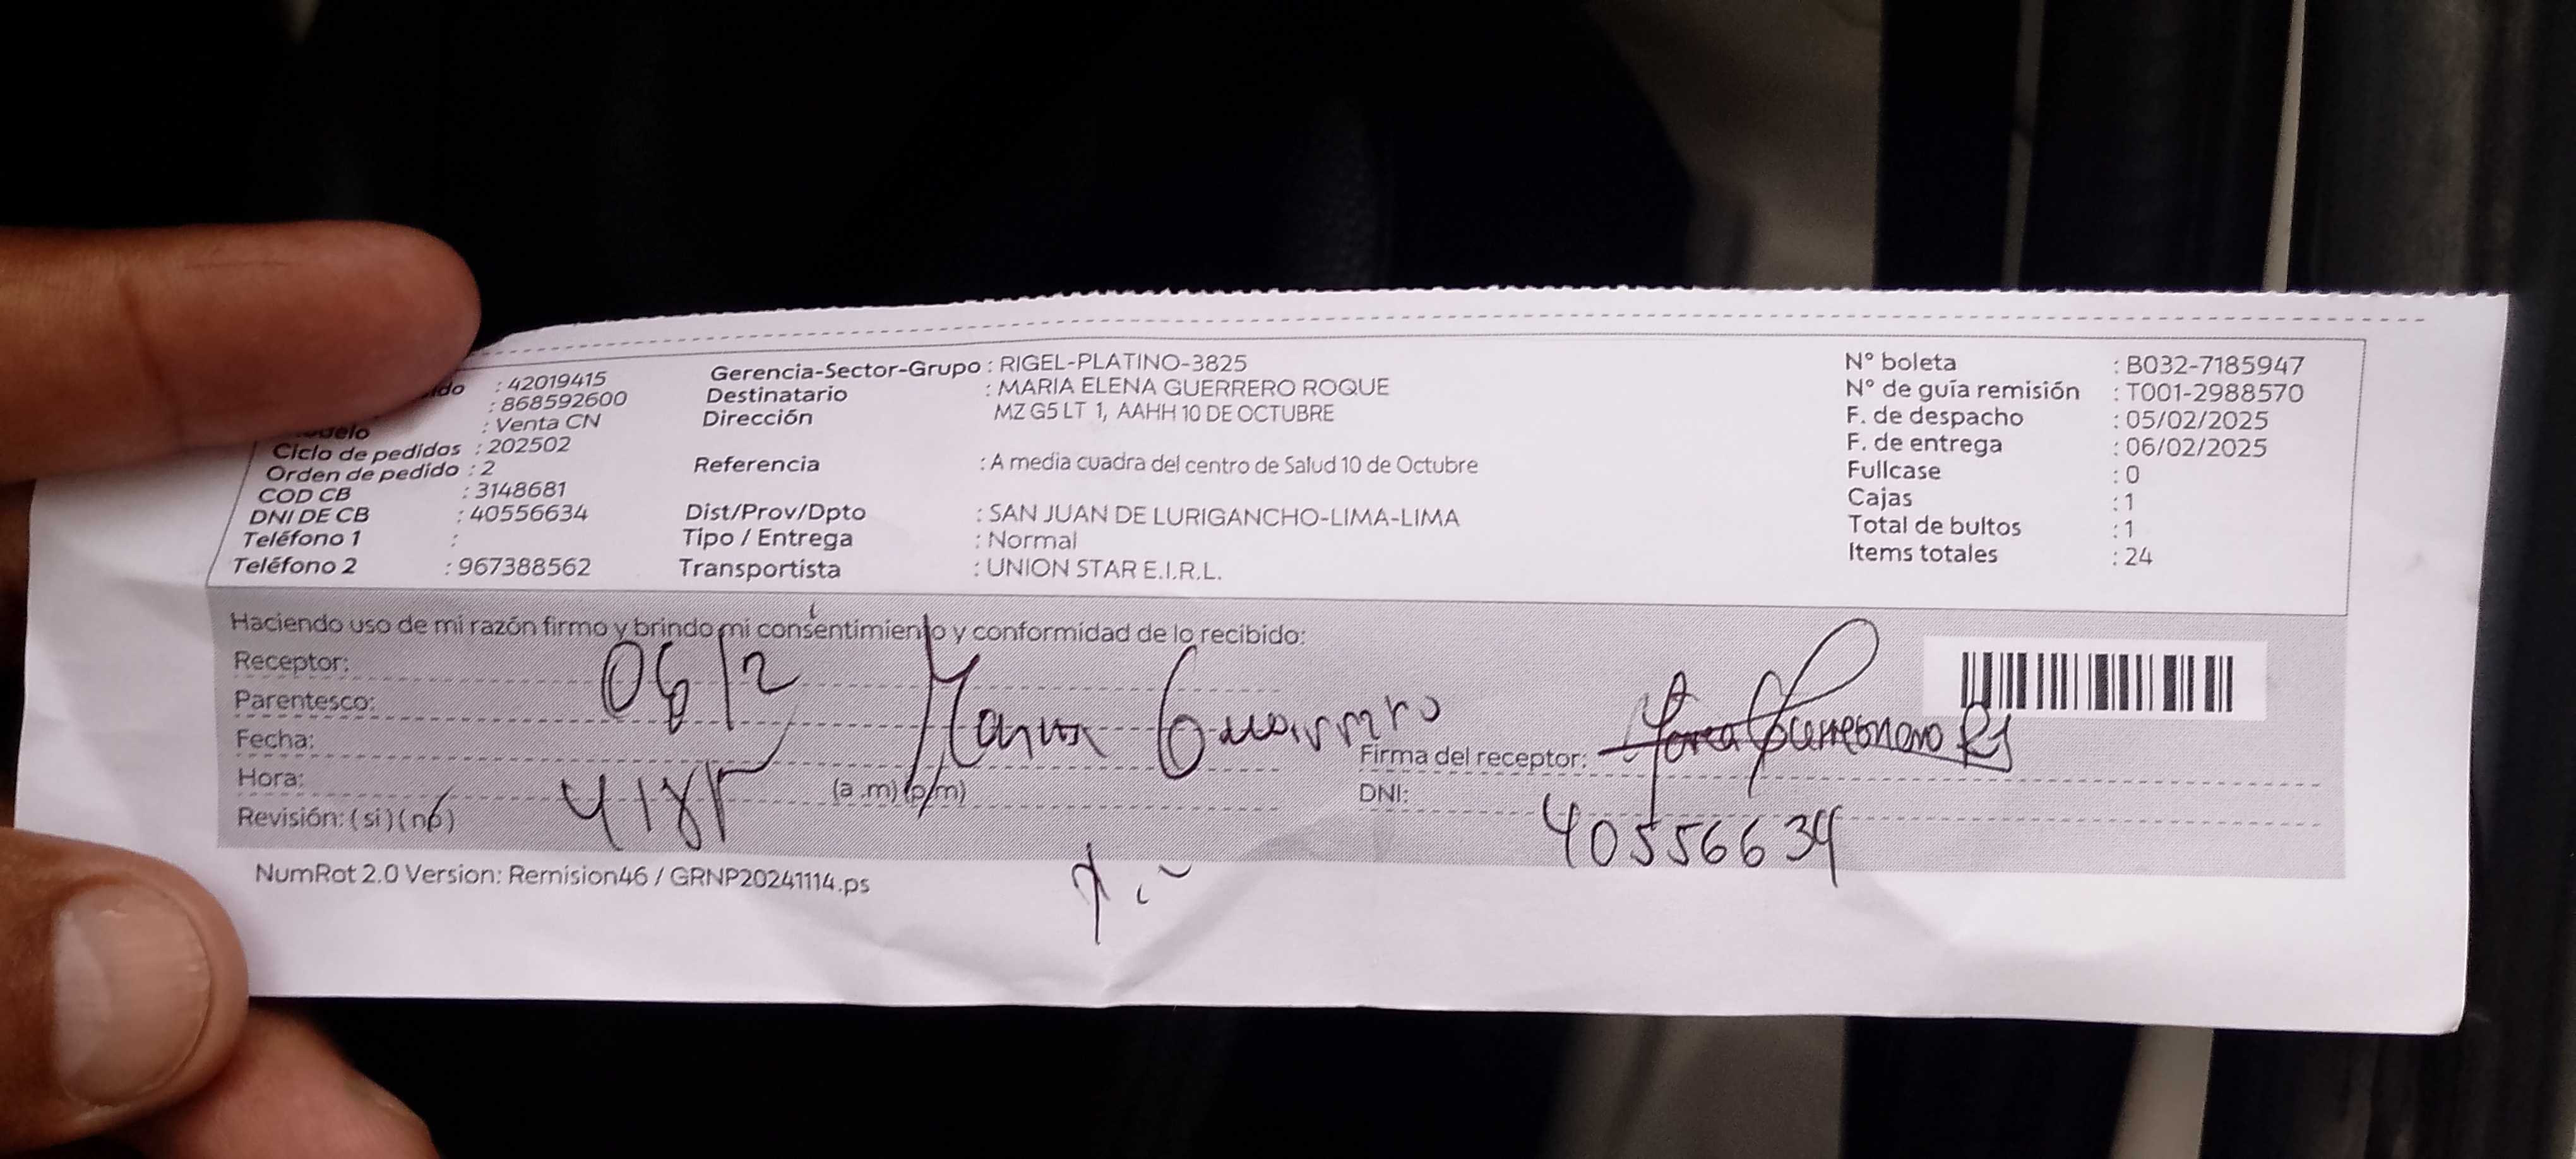 : 42019415
: 868592600
: Venta CN
Ciclo de pedidos : 202502
Orden de pedido : 2
COD CB : 3148681
DNI DE CB : 40556634
Teléfono 1 :
Teléfono 2 : 967388562
Gerencia-Sector-Grupo : RIGEL-PLATINO-3825
Destinatario : MARIA ELENA GUERRERO ROQUE
Dirección MZ G5 LT 1, AAHH 10 DE OCTUBRE
Referencia : A media cuadra del centro de Salud 10 de Octubre
Dist/Prov/Dpto : SAN JUAN DE LURIGANCHO-LIMA-LIMA
Tipo / Entrega : Normal
Transportista : UNION STAR E.I.R.L.
N° boleta : B032-7185947
N° de guía remisión : T001-2988570
F. de despacho : 05/02/2025
F. de entrega : 06/02/2025
Fullcase : 0
Cajas : 1
Total de bultos : 1
Items totales : 24
Haciendo uso de mi razón firmo y brindo mi consentimiento y conformidad de lo recibido:
Receptor:
Parentesco: 06/2
Fecha:
Hora: (a.m) (p.m)
Revisión: (si) (no)
Firma del receptor:
DNI: 40556634
NumRot 2.0 Version: Remision46 / GRNP20241114.ps